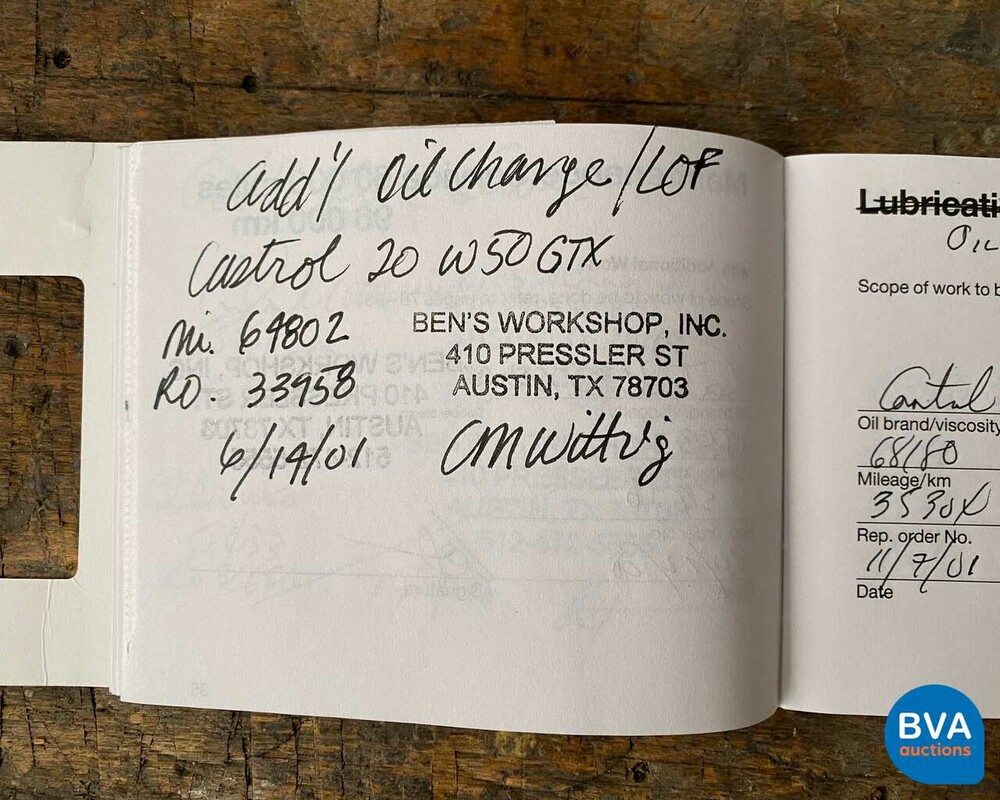 Add'l Oil Change/LOF
Castrol 20 W50 GTX
Mi. 64802
RO. 33958
6/14/01
BEN'S WORKSHOP, INC.
410 PRESSLER ST
AUSTIN, TX 78703
Lubricati
Oil
Scope of work to b
Castrol
Oil brand/viscosity
68180
Mileage/km
Rep. order No.
11/7/01
Date
BVA
auctions